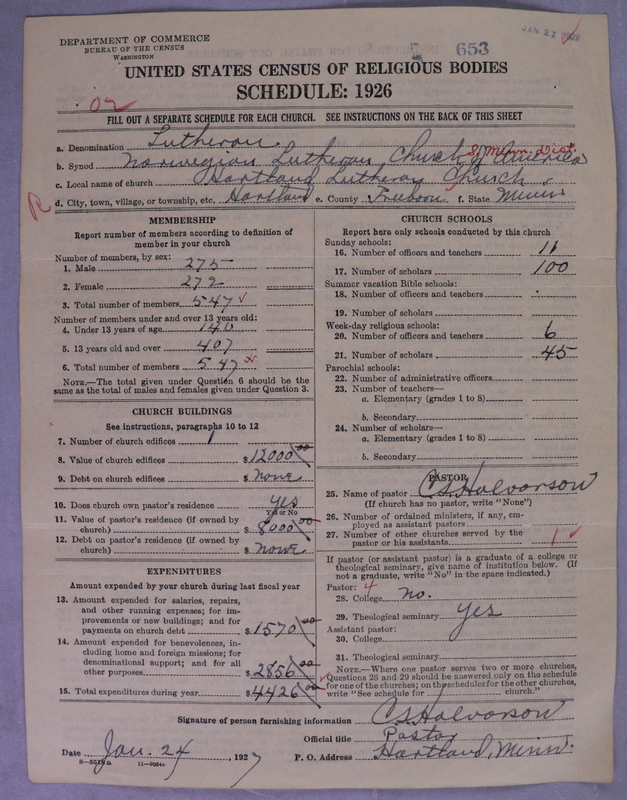 DEPARTMENT OF COMMERCE
BUREAU OF THE CENSUS
WASHINGTON
653
JAN 27
UNITED STATES CENSUS OF RELIGIOUS BODIES
SCHEDULE: 1926
FILL OUT A SEPARATE SCHEDULE FOR EACH CHURCH. SEE INSTRUCTIONS ON THE BACK OF THIS SHEET
a. Denomination Lutheran
S. Minn. Dist.
b. Synod Norwegian Lutheran Church of America
c. Local name of church Hartland Lutheran Church
d. City, town, village, or township, etc. Hartland e. County Freeborn f. State Minn
MEMBERSHIP
Report number of members according to definition of
member in your church
Number of members, by sex:
1. Male 275
2. Female 272
3. Total number of members 547
Number of members under and over 13 years old:
4. Under 13 years of age 140
5. 13 years old and over 407
6. Total number of members 547
NOTE.—The total given under Question 6 should be the
same as the total of males and females given under Question 3.
CHURCH BUILDINGS
See instructions, paragraphs 10 to 12
7. Number of church edifices 1
8. Value of church edifices $ 12000 00
9. Debt on church edifices $ none
10. Does church own pastor's residence Yes
Yes or No
11. Value of pastor's residence (if owned by
church) $ 8000 00
12. Debt on pastor's residence (if owned by
church) $ none
EXPENDITURES
Amount expended by your church during last fiscal year
13. Amount expended for salaries, repairs,
and other running expenses; for im-
provements or new buildings; and for
payments on church debt $ 1570 00
14. Amount expended for benevolences, in-
cluding home and foreign missions; for
denominational support; and for all
other purposes $ 2856 00
15. Total expenditures during year $ 4426 00
CHURCH SCHOOLS
Report here only schools conducted by this church
Sunday schools:
16. Number of officers and teachers 11
17. Number of scholars 100
Summer vacation Bible schools:
18. Number of officers and teachers
19. Number of scholars
Week-day religious schools:
20. Number of officers and teachers 6
21. Number of scholars 45
Parochial schools:
22. Number of administrative officers
23. Number of teachers—
a. Elementary (grades 1 to 8)
b. Secondary
24. Number of scholars—
a. Elementary (grades 1 to 8)
b. Secondary
PASTOR
25. Name of pastor C S Halvorson
(If church has no pastor, write "None")
26. Number of ordained ministers, if any, em-
ployed as assistant pastors
27. Number of other churches served by the
pastor or his assistants 1
If pastor (or assistant pastor) is a graduate of a college or
theological seminary, give name of institution below. (If
not a graduate, write "No" in the space indicated.)
Pastor: 4
28. College no.
29. Theological seminary Yes
Assistant pastor:
30. College
31. Theological seminary
NOTE.—Where one pastor serves two or more churches,
Questions 28 and 29 should be answered only on the schedule
for one of the churches; on the schedules for the other churches,
write "See schedule for church."
Signature of person furnishing information C S Halvorson
Official title Pastor
Date Jan. 24, 1927 P. O. Address Hartland, Minn.
8—5518a 11—9054a